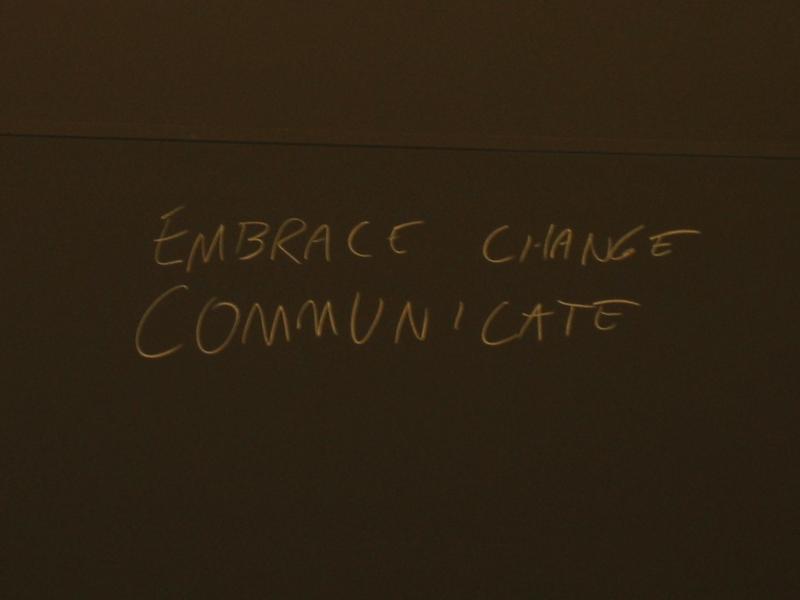 EMBRACE CHANGE
COMMUNICATE